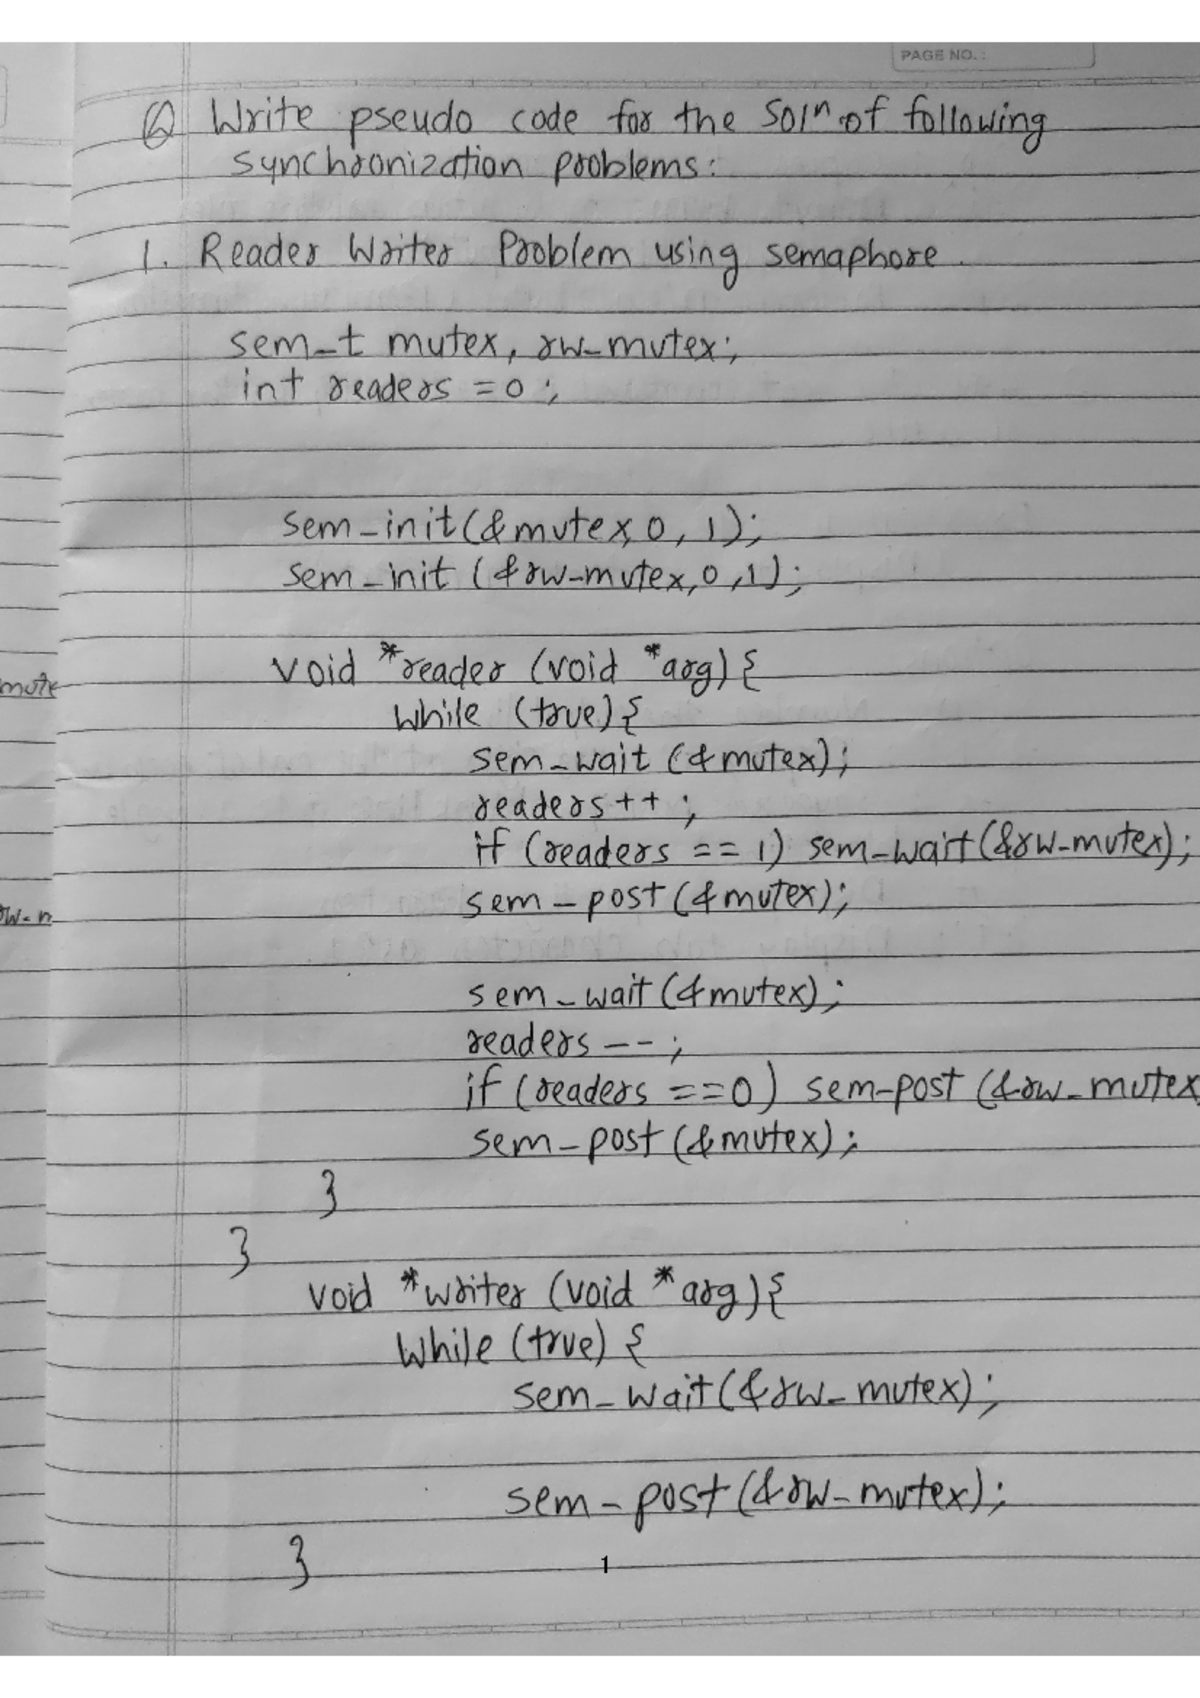 PAGE NO.:
Q Write pseudo code for the Solⁿ of following
synchronization problems:
1. Reader Writer Problem using semaphore.
sem_t mutex, rw_mutex;
int readers = 0;
sem_init(&mutex, 0, 1);
sem_init (&rw_mutex, 0, 1);
void *reader (void *arg) {
mute
while (true) {
sem_wait (&mutex);
readers++;
if (readers == 1) sem_wait(&rw_mutex);
sem_post (&mutex);
rw_m
sem_wait (&mutex);
readers--;
if (readers ==0) sem_post (&rw_mutex
sem_post (&mutex);
}
}
void *writer (void *arg) {
while (true) {
sem_wait (&rw_mutex);
sem_post (&rw_mutex);
}
1